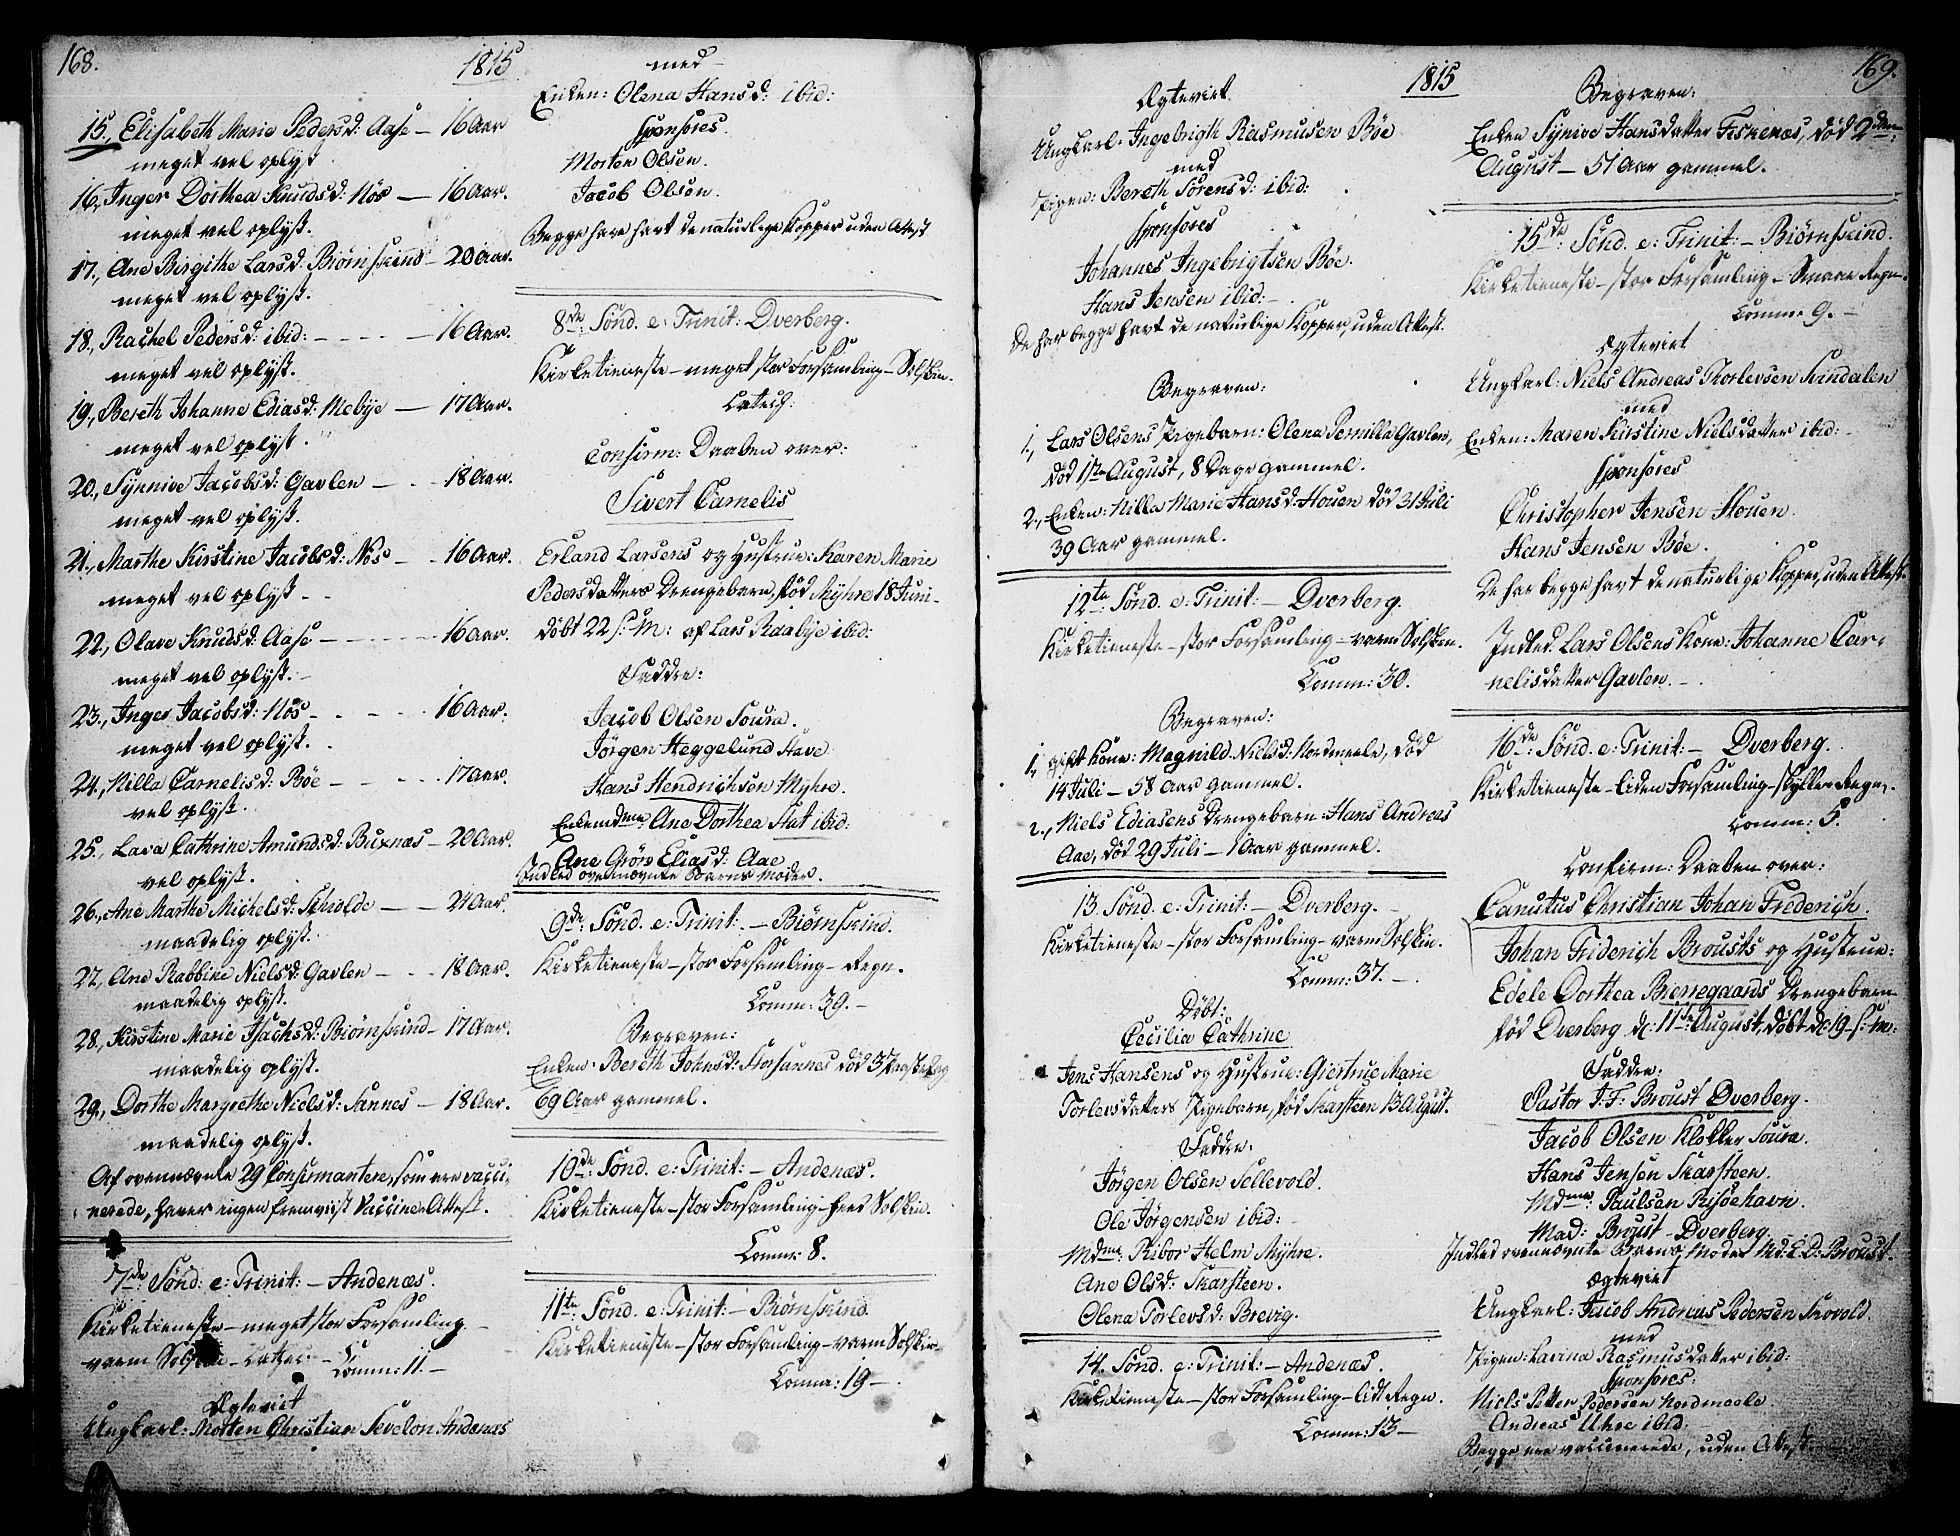 168.
1815
15., Elisabeth Marie Pedersd: Aase — 16 Aar
meget vel oplyst
16., Inger Dorthea Knudsd: Nös — 16 Aar.
meget vel oplyst.
17., Ane Birgithe Larsd: Biörnskind — 20 Aar.
meget vel oplyst.
18., Rachel Pedersd: ibid: — — — 16 Aar.
meget vel oplyst.
19., Bereth Johanne Ediasd: Mebye — 17 Aar.
meget vel oplyst.
20., Synnive Jacobsd: Gavlen — — 18 Aar.
meget vel oplyst.
21., Marthe Kirstine Jacobsd: Nös — 16 Aar.
meget vel oplyst —
22., Olave Knudsd: Aase — — — 16 Aar.
meget vel oplyst. —
23., Inger Jacobsd: Nös — — — 16 Aar.
meget vel oplyst.
24., Nilla Carnelisd: Böe — — — 17 Aar.
vel oplyst.
25., Lava Cathrine Amundsd: Buxnæs — 20 Aar.
vel oplyst.
26., Ane Marthe Michelsd: — — 21 Aar.
maadelig oplyst.
27., Ane Rabbine Nielsd: Gavlen — — 18 Aar.
maadelig oplyst.
28., Kirstine Marie Isachsd: Biörnskind — 17 Aar.
maadelig oplyst.
29., Dorthe Margrethe Nielsd: Sannes — 18 Aar.
maadelig oplyst.
Af ovennævnte 29 Confirmantere, som ere vacci,
nerede, haver ingen fremviist Vaccine Attest.
7de: Sönd: e: Trinit: — Andenæs.
Kirketieneste — meget stor Forsamling —
varm Solskin — Catec: —
Comm: 11. —
Ægteviet
Ungkarl: Morten Christian Andenæs
med —
Enken: Olena Hansd: ibid:
Sponsores.
Morten Olsen.
Jacob Olsen.
Begge have havt de naturlige Kopper uden Attest
8de: Sönd. e: Trinit: Dverberg.
Kirketieneste — meget stor Forsamling — Solskin.
Catech:
Confirm: Daaben over:
Sivert Carnelis
Erland Larsens og Hustrue: Karen Marie
Pedersdatters Drengebarn, född Myhre 18 Juni —
döbt 22 s: M: af Lars Raabye ibid:
Faddre:
Jacob Olsen Soura.
Jörgen Heggelund Have
Hans Hendrichsen Myhre.
Enkemdme: Ane Dorthea ibid:
Ane Grön Eliasd: Aae
Indled ovennævnte Barns Moder.
9de: Sönd. e: Trinit. — Biörnskind.
Kirketieneste — stor Forsamling — Regn.
Comm: 39. —
Begraven:
Enken: Bereth Johnsd: död
69 Aar gammel.
10de: Sönd. e: Trinit: — Andenæs.
Kirketieneste — stor Forsamling — Solskin.
Comm: 8.
11te: Sönd. e: Trinit: — Biörnskind
Kirketieneste — stor Forsamling — varm Solskin —
Comm: 19 —
1815
169.
Ægteviet
Ungkarl: Ingebrigth Rasmusen Böe
med
Pigen: Bereth Sörensd: ibid:
Sponsores
Johannes Ingebrigtsen Böe.
Hans Jensen ibid: —
De har begge havt de naturlige Kopper, uden Attest.
Begraven:
1., Lars Olsens Pigebarn: Olena Pernilla Gavlen,
död 1ste August, 8 Dage gammel.
2., Enken: Nilla Marie Hansd: Houen död 31 Juli
39 Aar gammel.
12te: Sönd. e: Trinit: — Dverberg.
Kirketieneste — stor Forsamling — varm Solskin.
Comm: 30.
Begraven:
1., gift Kone: Magnild Nielsd: Nordmeele, död
14 Juli — 58 Aar gammel.
2., Niels Ediasens Drengebarn: Hans Andreas
Aae, död 29 Juli — 1 Aar gammel.
13. Sönd. e: Trinit: — Dverberg. —
Kirketieneste — stor Forsamling — varm Solskin.
Comm: 37. —
Döbt:
Cecilia Cathrine
Jens Hansens og Hustrue: Giertrue Marie
Torlevsdatters Pigebarn, föd Skarsteen 13 August.
Faddre:
Jörgen Olsen Sellevold.
Ole Jörgensen ibid: —
Mdme: Ribor Helm Myhre.
Ane Olsd: Skarsteen.
Olena Torlevsd: Brevig.
14. Sönd. e: Trinit: — Andenæs.
Kirketieneste — stor Forsamling — lidt Regn.
Comm: 13 —
Begraven:
Enken Synive Hansdatter Fiskenæs, död 2den
August — 51 Aar gammel.
15de: Sönd. e: Trinit: — Biörnskind.
Kirketieneste — stor Forsamling — Regn.
Comm: 9. —
Ægteviet
Ungkarl: Niels Andreas Thorlevsen Svindalen
med
Enken: Maren Kirstine Nielsdatter ibid: —
Sponsores
Christopher Jensen Houen.
Hans Jensen Böe.
De har begge havt de naturlige Kopper, uden Attest.
Indled: Lars Olsens Kone: Johanne Car-
nelisdatter Gavlen. —
16de: Sönd. e: Trinit: — Dverberg.
Kirketieneste — liden Forsamling — Regn.
Comm: 5.
Confirm: Daaben over:
Canutus Christian Johan Frederich.
Johan Friderich Brousts og Hustrue:
Edele Dorthea Brennegaards Drengebarn
föd Dverberg d: 11te August, döbt d: 19 s: M:
Faddre:
Pastor J: F: Broust Dverberg.
Jacob Olsen Klokker Soura.
Hans Jensen Skarsteen.
Mdme: Paulsen Risöehavn.
Mad: Broust Dverberg.
Indled ovennævnte Barns Moder Md: E. D: Broust.
Ægteviet
Ungkarl: Jacob Andreas Pedersen
med
Pigen: Lavina Rasmusdatter ibid:
Sponsores.
Niels Petter Pedersen Nordmeele
Andreas Uhre ibid:
Begge ere vaccinerede, uden Attest